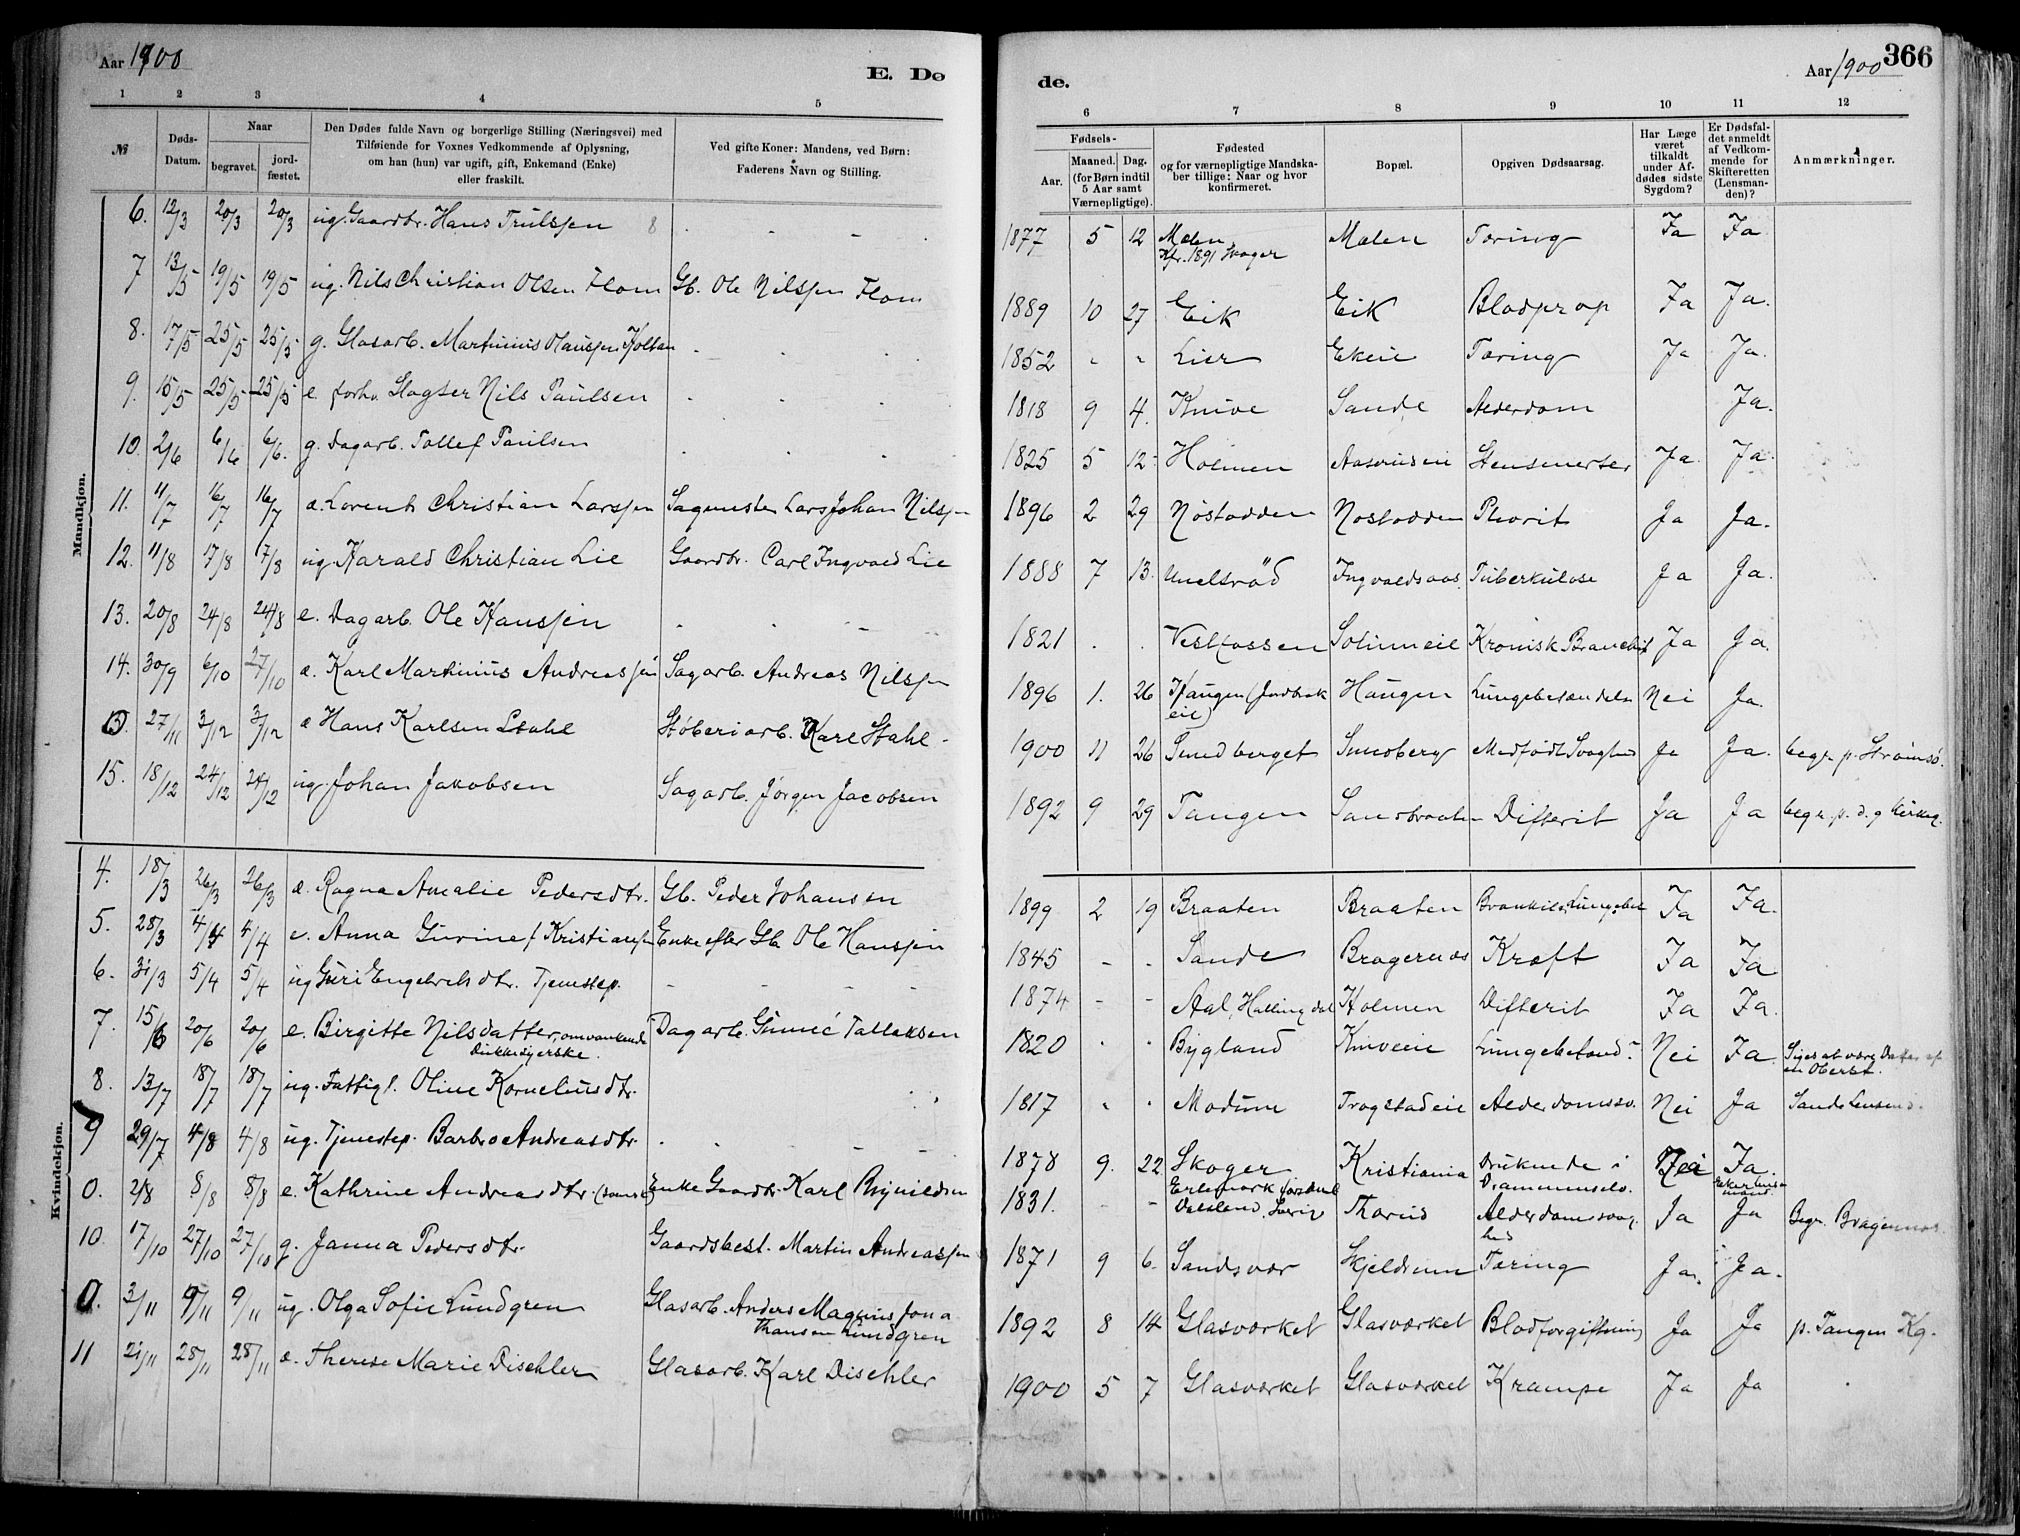 Aar 1900
E. Dø
de.
Aar 1900
366
1 2 3 4 5
6 7 8 9 10 11 12
№
Døds-Datum.
Naar
begravet.
jord-fæstet.
Den Dødes fulde Navn og borgerlige Stilling (Næringsvei) med
Tilføiende for Voxnes Vedkommende af Oplysning,
om han (hun) var ugift, gift, Enkemand (Enke)
eller fraskilt.
Ved gifte Koner: Mandens, ved Børn:
Faderens Navn og Stilling.
Fødsels-
Aar.
Maaned. Dag.
(for Børn indtil
5 Aar samt
Værnepligtige).
Fødested
og for værnepligtige Mandska-
ber tillige: Naar og hvor
konfirmeret.
Bopæl.
Opgiven Dødsaarsag.
Har Læge
været
tilkaldt
under Af-
dødes sidste
Sygdom?
Er Dødsfal-
det anmeldt
af Vedkom-
mende for
Skifteretten
(Lensman-
den)?
Anmærkninger.
Mandkjøn.
6. 12/3 20/3 20/3 ug. Gaardbr. Hans Trulssen 8 1877 5 12 Mælen Mælen Tæring Ja Ja
Kfr. 1891 Skoger
7 13/5 19/5 19/5 ug. Nils Christian Olsen Flom Gb. Ole Nilssen Flom 1889 10 27 Eik Eik Blodprop Ja Ja.
8. 17/5 25/5 25/5 g. Glasarb. Martinius Olaussen 1852 " " Lier Ekeie Tæring Ja Ja.
9. 15/5 25/5 25/5 e. forhv. Slagter Nils Paulsen 1818 9 4. Knive Sande Alderdom Ja.
10. 2/6 6/6 6/6. g. Dagarb. Tollef Paulsen 1825 5 12 Holmen Aasrudeie Stensmerter Ja Ja.
11. 11/7 16/7 16/7 æ. Lorents Christian Larssen Sagmester Lars Johan Nilssen 1896 2 29 Nøstodden Nøstodden Plevrit Ja Ja.
12. 11/8 17/8 17/8 ug Harald Christian Lie Gaardbr. Carl Ingvald Lie 1888 7 13. Unelsrød Ingvaldsaas Tuberkulose Ja Ja.
13. 20/8 24/8 24/8 e. Dagarb. Ole Hanssen 1821 . . Vestfossen Solumeie Kronisk Ja Ja.
14. 30/9 6/10 27/10 æ. Karl Martinius Andreassen Sagarb. Andreas Nilssen 1896 1. 26 Haugen Haugen Nei Ja.
eie)
0. 27/11 3/12 3/12 æ Hans Karlsen Stahl Støberiarb. Karl Stahl 1900 11 26 Smedberget Smedberg Medfødt Svaghed Ja Ja. begr. p. Strømsø.
15. 18/12 24/12 24/12 ug. Johan Jakobsen Sagarb. Jørgen Jacobsen 1892 9 29 Tangen Sandbraaten Difterit Ja Ja begr. p. d. g Kirkeg.
Kvindekjøn.
4. 18/3 26/3 26/3 æ. Ragna Amalie Pedersdtr. Gb. Peder Johansen 1899 2 19 Braaten Braaten Ja Ja.
5. 28/3 4/4 4/4 e. Anna Gurine f. Kristiansen Enke efter Gb. Ole Hanssen 1845 - - Sande Bragernæs Kræft Ja Ja
6. 31/3 5/4 5/4 ug Guri Engebretsdtr. Tjenestep. 1874 - - Aal, Hallingdal Holmen Difterit Ja Ja.
7. 15/6 20/6 20/6 e. Birgitte Nilsdatter, omvankende Dagarb. Gunne Tallaksen 1820 " " Bygland Kniveeie Lungebetænd. Nei Ja. Siges at være Datter af
en Oberst.
8. 13/7 18/7 18/7 ug. Fattigl. Oline Korneliusdtr. 1817 " " Modum Trogstadeie Alderdomssv. Nei Ja Sande Lensmd.
9 29/7 4/8 4/8 ug. Tjenestep. Barbro Andreasdtr. 1878 9. 22 Skoger Kristiania Druknede i Nei Ja.
Drammenselv.
0. 2/8 8/8 8/8 e. Kathrine Andreasdtr. Enke Gaardbr. Karl 1831. - - Thorud Alderdomssvag. Ja Ja Begr. Bragernæs
hed
10. 17/10 27/10 27/10 g. Janna Pedersdtr. Gaardsbest. Martin Andreassen 1871 9 6. Sandsvær Skjeldrum Tæring Ja. Ja.
0. 3/11 9/11 9/11 ug. Olga Sofie Lundgren Glasarb. Anders Magnus Jona 1892 8 14 Glasværket Glasværket Blodforgiftning Ja Ja p. Tangen Kg.
thansen Lundgren
11 21/11 28/11 28/11 æ. Therese Marie Dischler Glasarb. Karl Dischler 1900 5 7 Glasværket Glasværket Krampe Ja Ja